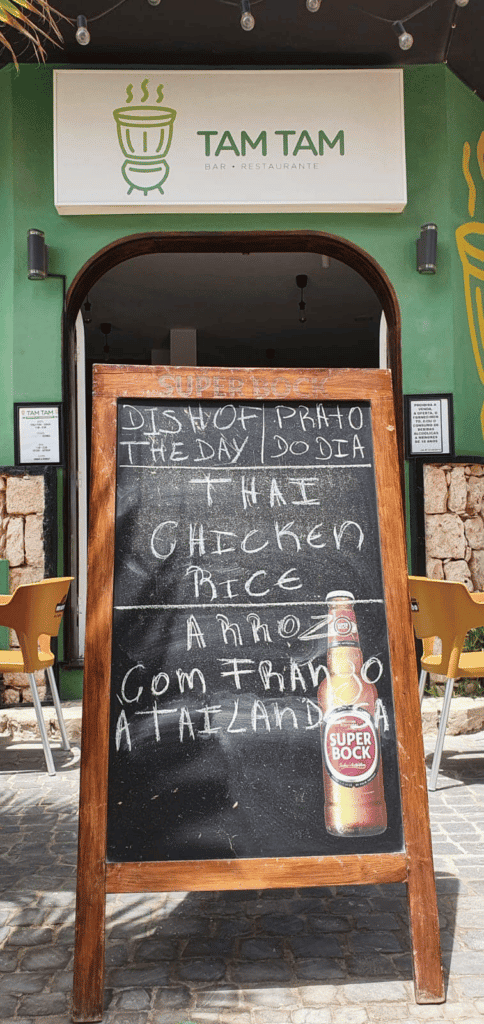 TAM TAM
BAR • RESTAURANTE
SUPER BOCK
DISH OF | PRATO
THE DAY | DO DIA
THAI
CHICKEN
RICE
ARROZ
COM FRANGO
A TAILANDESA
SUPER
BOCK
TAM TAM
PROIBIDA A
VENDA,